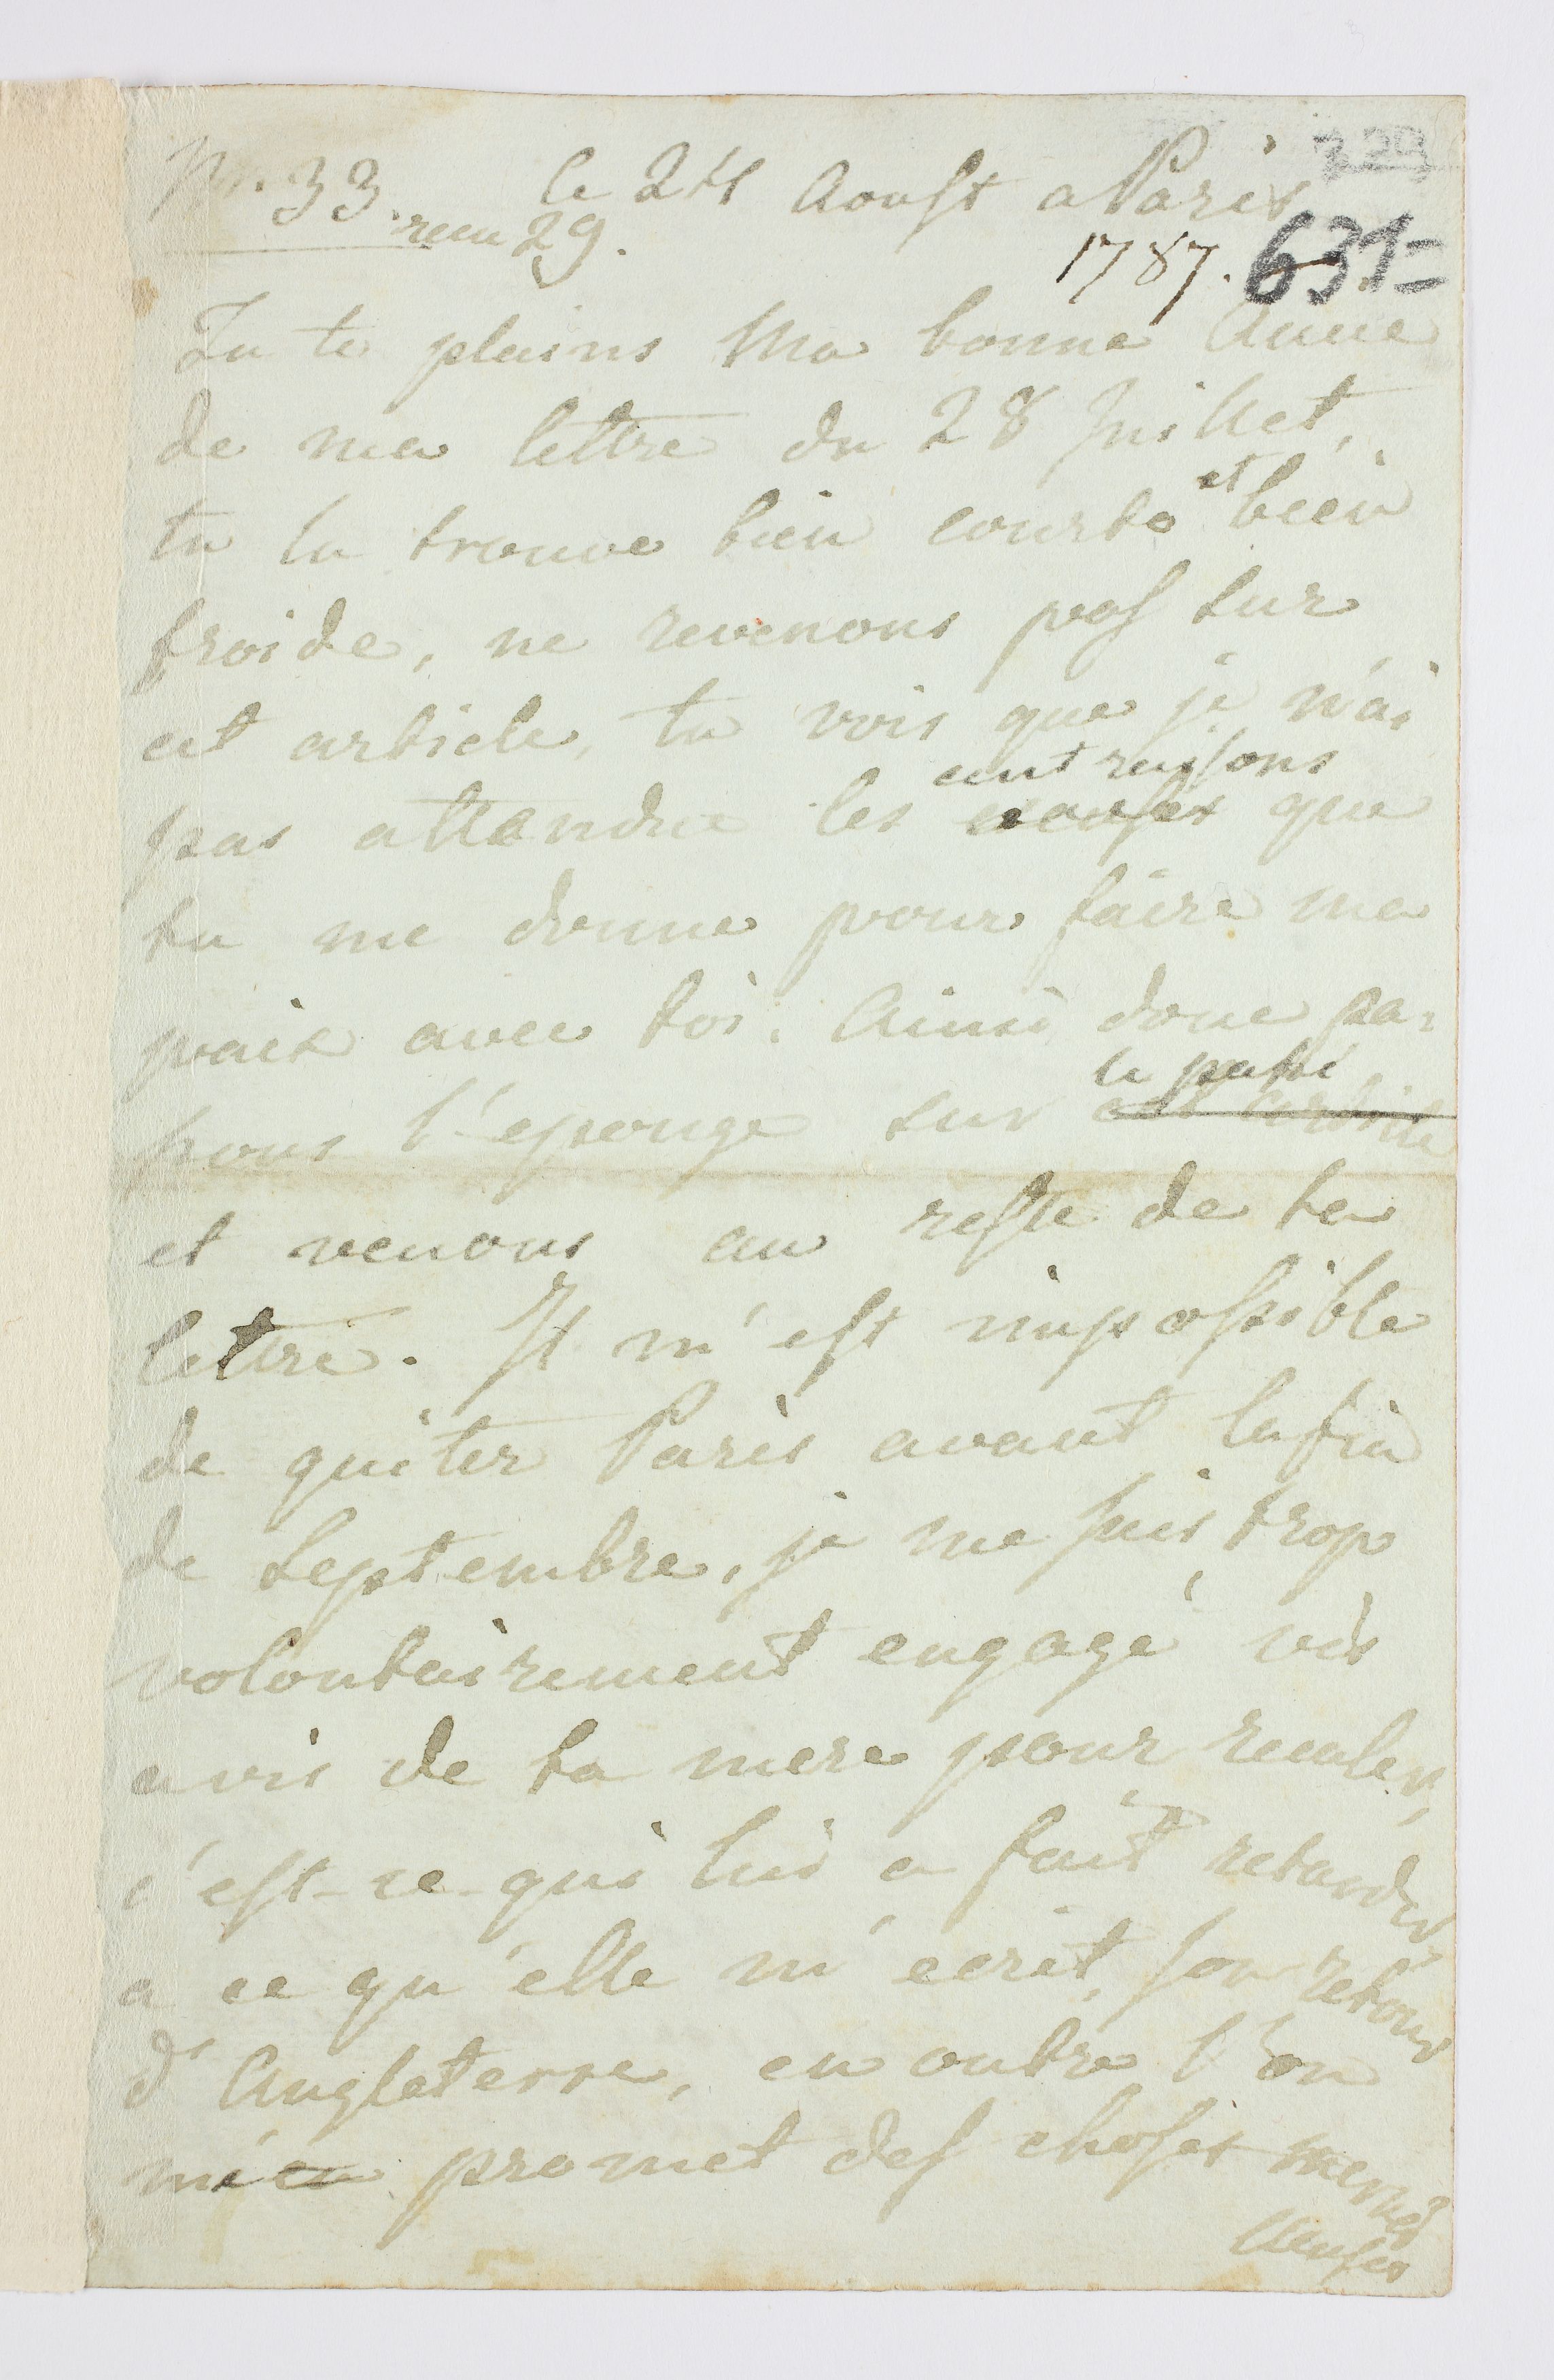 Nr. 33. le 24 Aoust a Paris 329
recu 29.
1787. 631=
Tu te plains Ma bonne Amie
de ma lettre du 28 Juillet,
tu la trouve bien courte et bien
froide, ne revenons pas sur
cet article, tu vois que je n'ai
cent raisons
pas attendue les excuses que
tu me donne pour faire ma
paix avec toi. Ainsi donc pas-
le passé
sons l'eponge sur cet article
et venons au reste de ta
lettre. Il m'est impossible
de quiter Paris avant la fin
de Septembre, je me suis trop
volontairement engagé vis
a vis de ta mere pour reculer,
c'est-ce-qui lui a fait retarder
a ce qu'elle m'ecrit, son retour
d'Angleterre, en outre l'on
m'en promet des choses merveil
leuses